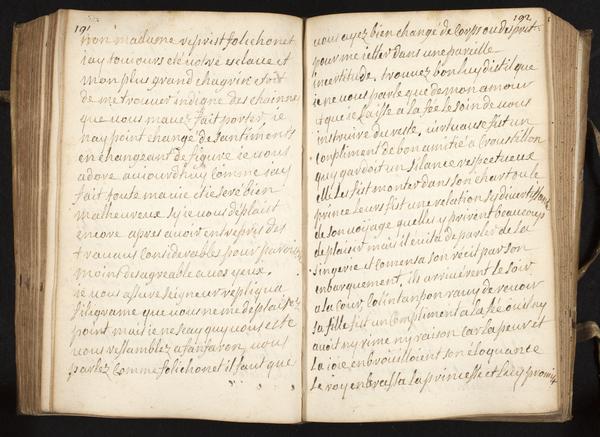 191
non madame reprist folichonet
iay toujours ete votre esclave et
mon plus grand chagrin etoit
de me trouver indigne des chainnes
que vous mavez fait porter, ie
nay point changé de santiments
en changeant de figure ie vous
adore aujourdhuy comme iay
fait toute ma vie et ie seré bien
malheureux sy ie vous deplaist
encore apres avoir entrepris des
travaux considerables pour paroitre
moin desagreable a vos yeux.
ie vous assure seigneur repliqua
filigrame que vous ne me deplaisez
point mais ie ne scay quy vous ete
vous resamblez a fanfaron vous
parlez comme folichonet il faut que
192
vous ayez bien changé de corps ou desprit
pour me ietter dans une pareille
incertitude. trouvez bon luy dist il que
ie ne vous parle que de mon amour
et que ie laisse a la fée le soin de vous
instruire du reste, virtuause fist un
compliment de bon amitié a Croustillon
quy gardoit un silance respectueux
elle les fist monter dans son char ou le
prince leurs fist une relation sy divertissante
de son voyage quelles y prirent beaucoup
de plaisir mais il evita de parler de la
singerie et comensa son récit par son
enbarquement. ils arrivèrent le soir
a la cour, Colintanpon ravy de revoir
sa fille fist un compliment a la fée ou il ny
avoit ny rime ny raison car la peur et
la ioie enbrouilloient son éloquance
le roy enbrassa la princesse et luy promit